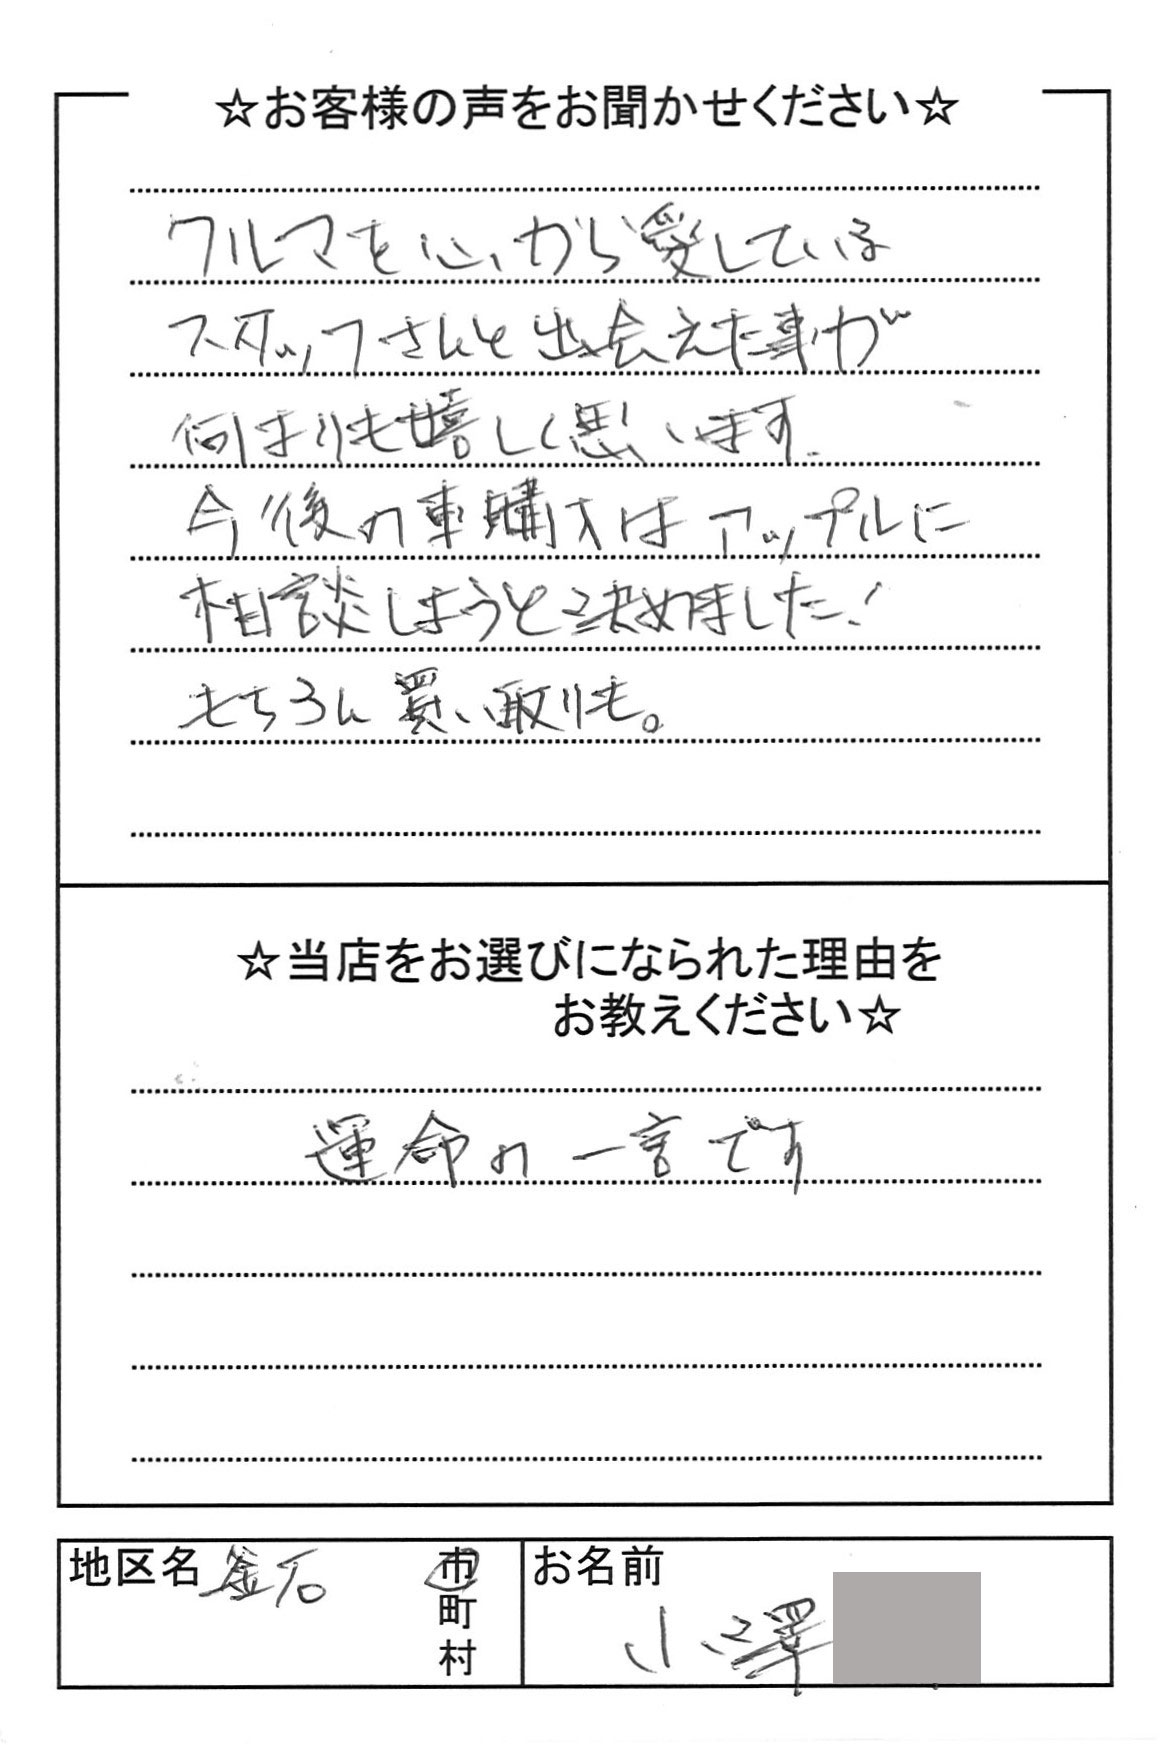 ☆お客様の声をお聞かせください☆
クルマを心から愛している
スタッフさんと出会えた事が
何よりも嬉しく思います.
今後の車購入はアップルに
相談しようと決めました!
もちろん買い取りも。
☆当店をお選びになられた理由を
お教えください☆
運命の一言です
地区名 釜石 市
町
村
お名前
小澤